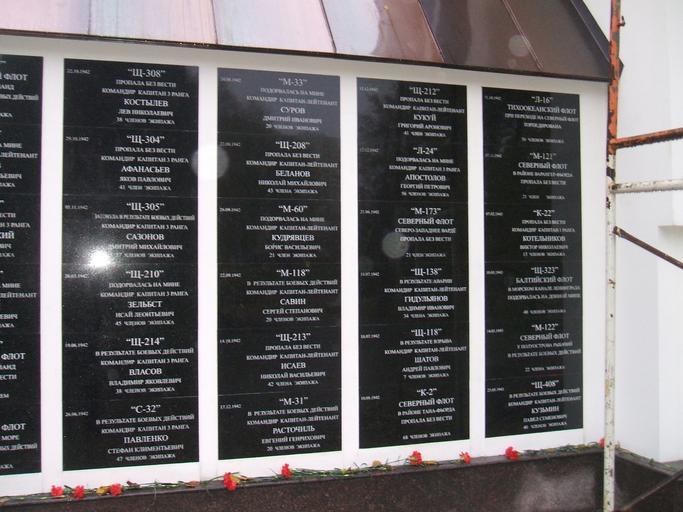 ФЛОТ
22.10.1942
"Щ-308"
ПРОПАЛА БЕЗ ВЕСТИ
КОМАНДИР КАПИТАН 3 РАНГА
КОСТЫЛЕВ
ЛЕВ НИКОЛАЕВИЧ
38 ЧЛЕНОВ ЭКИПАЖА
29.10.1942
"Щ-304"
ПРОПАЛА БЕЗ ВЕСТИ
КОМАНДИР КАПИТАН 3 РАНГА
АФАНАСЬЕВ
ЯКОВ ПАВЛОВИЧ
41 ЧЛЕН ЭКИПАЖА
05.11.1942
"Щ-305"
В РЕЗУЛЬТАТЕ БОЕВЫХ ДЕЙСТВИЙ
КОМАНДИР КАПИТАН 3 РАНГА
САЗОНОВ
ДМИТРИЙ МИХАЙЛОВИЧ
ЧЛЕНОВ ЭКИПАЖА
"Щ-210"
ПОДОРВАЛАСЬ НА МИНЕ
КОМАНДИР КАПИТАН 3 РАНГА
ЗЕЛЬБСТ
ИСАЙ ЛЕОНТЬЕВИЧ
45 ЧЛЕНОВ ЭКИПАЖА
19.06.1942
"Щ-214"
В РЕЗУЛЬТАТЕ БОЕВЫХ ДЕЙСТВИЙ
КОМАНДИР КАПИТАН 3 РАНГА
ВЛАСОВ
ВЛАДИМИР ЯКОВЛЕВИЧ
38 ЧЛЕНОВ ЭКИПАЖА
26.06.1942
"С-32"
В РЕЗУЛЬТАТЕ БОЕВЫХ ДЕЙСТВИЙ
КОМАНДИР КАПИТАН 3 РАНГА
ПАВЛЕНКО
СТЕФАН КЛИМЕНТЬЕВИЧ
47 ЧЛЕНОВ ЭКИПАЖА
"М-33"
ПОДОРВАЛАСЬ НА МИНЕ
КОМАНДИР КАПИТАН-ЛЕЙТЕНАНТ
СУРОВ
ДМИТРИЙ ИВАНОВИЧ
20 ЧЛЕНОВ ЭКИПАЖА
"Щ-208"
ПРОПАЛА БЕЗ ВЕСТИ
КОМАНДИР КАПИТАН-ЛЕЙТЕНАНТ
БЕЛАНОВ
НИКОЛАЙ МИХАЙЛОВИЧ
43 ЧЛЕНА ЭКИПАЖА
26.09.1942
"М-60"
ПОДОРВАЛАСЬ НА МИНЕ
КОМАНДИР КАПИТАН-ЛЕЙТЕНАНТ
КУДРЯВЦЕВ
БОРИС ВАСИЛЬЕВИЧ
21 ЧЛЕН ЭКИПАЖА
"М-118"
В РЕЗУЛЬТАТЕ БОЕВЫХ ДЕЙСТВИЙ
КОМАНДИР КАПИТАН-ЛЕЙТЕНАНТ
САВИН
СЕРГЕЙ СТЕПАНОВИЧ
20 ЧЛЕНОВ ЭКИПАЖА
14.10.1942
"Щ-213"
ПРОПАЛА БЕЗ ВЕСТИ
КОМАНДИР КАПИТАН-ЛЕЙТЕНАНТ
ИСАЕВ
НИКОЛАЙ ВАСИЛЬЕВИЧ
42 ЧЛЕНА ЭКИПАЖА
17.12.1942
"М-31"
В РЕЗУЛЬТАТЕ БОЕВЫХ ДЕЙСТВИЙ
КОМАНДИР КАПИТАН-ЛЕЙТЕНАНТ
РАСТОЧИЛЬ
ЕВГЕНИЙ ГЕНРИХОВИЧ
20 ЧЛЕНОВ ЭКИПАЖА
"Щ-212"
ПРОПАЛА БЕЗ ВЕСТИ
КОМАНДИР КАПИТАН-ЛЕЙТЕНАНТ
КУКУЙ
ГРИГОРИЙ АРОНОВИЧ
"Л-24"
ПОДОРВАЛАСЬ НА МИНЕ
КОМАНДИР КАПИТАН 3 РАНГА
АПОСТОЛОВ
ГЕОРГИЙ ПЕТРОВИЧ
ЧЛЕНОВ ЭКИПАЖА
"М-173"
СЕВЕРНЫЙ ФЛОТ
СЕВЕРО-ЗАПАДНЕЕ ВАРДЁ
ПРОПАЛА БЕЗ ВЕСТИ
"Щ-138"
В РЕЗУЛЬТАТЕ АВАРИИ
КОМАНДИР КАПИТАН-ЛЕЙТЕНАНТ
ГИДУЛЬЯНОВ
ВЛАДИМИР ИВАНОВИЧ
"Щ-118"
В РЕЗУЛЬТАТЕ ВЗРЫВА
КОМАНДИР КАПИТАН-ЛЕЙТЕНАНТ
ШАТОВ
АНДРЕЙ ПАВЛОВИЧ
7 ЧЛЕНОВ ЭКИПАЖА
"К-2"
СЕВЕРНЫЙ ФЛОТ
В РАЙОНЕ ТАНА-ФЬОРДА
ПРОПАЛА БЕЗ ВЕСТИ
68 ЧЛЕНОВ ЭКИПАЖА
"Л-16"
ТИХООКЕАНСКИЙ ФЛОТ
ПРИ ПЕРЕХОДЕ НА СЕВЕРНЫЙ ФЛОТ
ТОРПЕДИРОВАНА
"М-121"
СЕВЕРНЫЙ ФЛОТ
В РАЙОНЕ ВАРАНГЕР-ФЬОРДА
ПРОПАЛА БЕЗ ВЕСТИ
"К-22"
ПРОПАЛА БЕЗ ВЕСТИ
КОМАНДИР КАПИТАН 2 РАНГА
КОТЕЛЬНИКОВ
ВИКТОР НИКОЛАЕВИЧ
"Щ-323"
БАЛТИЙСКИЙ ФЛОТ
В МОРСКОМ КАНАЛЕ ЛЕНИНГРАДА
ПОДОРВАЛАСЬ НА ДОННОЙ МИНЕ
"М-122"
СЕВЕРНЫЙ ФЛОТ
У ПОЛУОСТРОВА РЫБАЧИЙ
В РЕЗУЛЬТАТЕ БОЕВЫХ ДЕЙСТВИЙ
22 ЧЛЕНА ЭКИПАЖА
"Щ-408"
В РЕЗУЛЬТАТЕ БОЕВЫХ ДЕЙСТВИЙ
КОМАНДИР КАПИТАН-ЛЕЙТЕНАНТ
КУЗЬМИН
ПАВЕЛ СЕМЕНОВИЧ
ЧЛЕНОВ ЭКИПАЖА